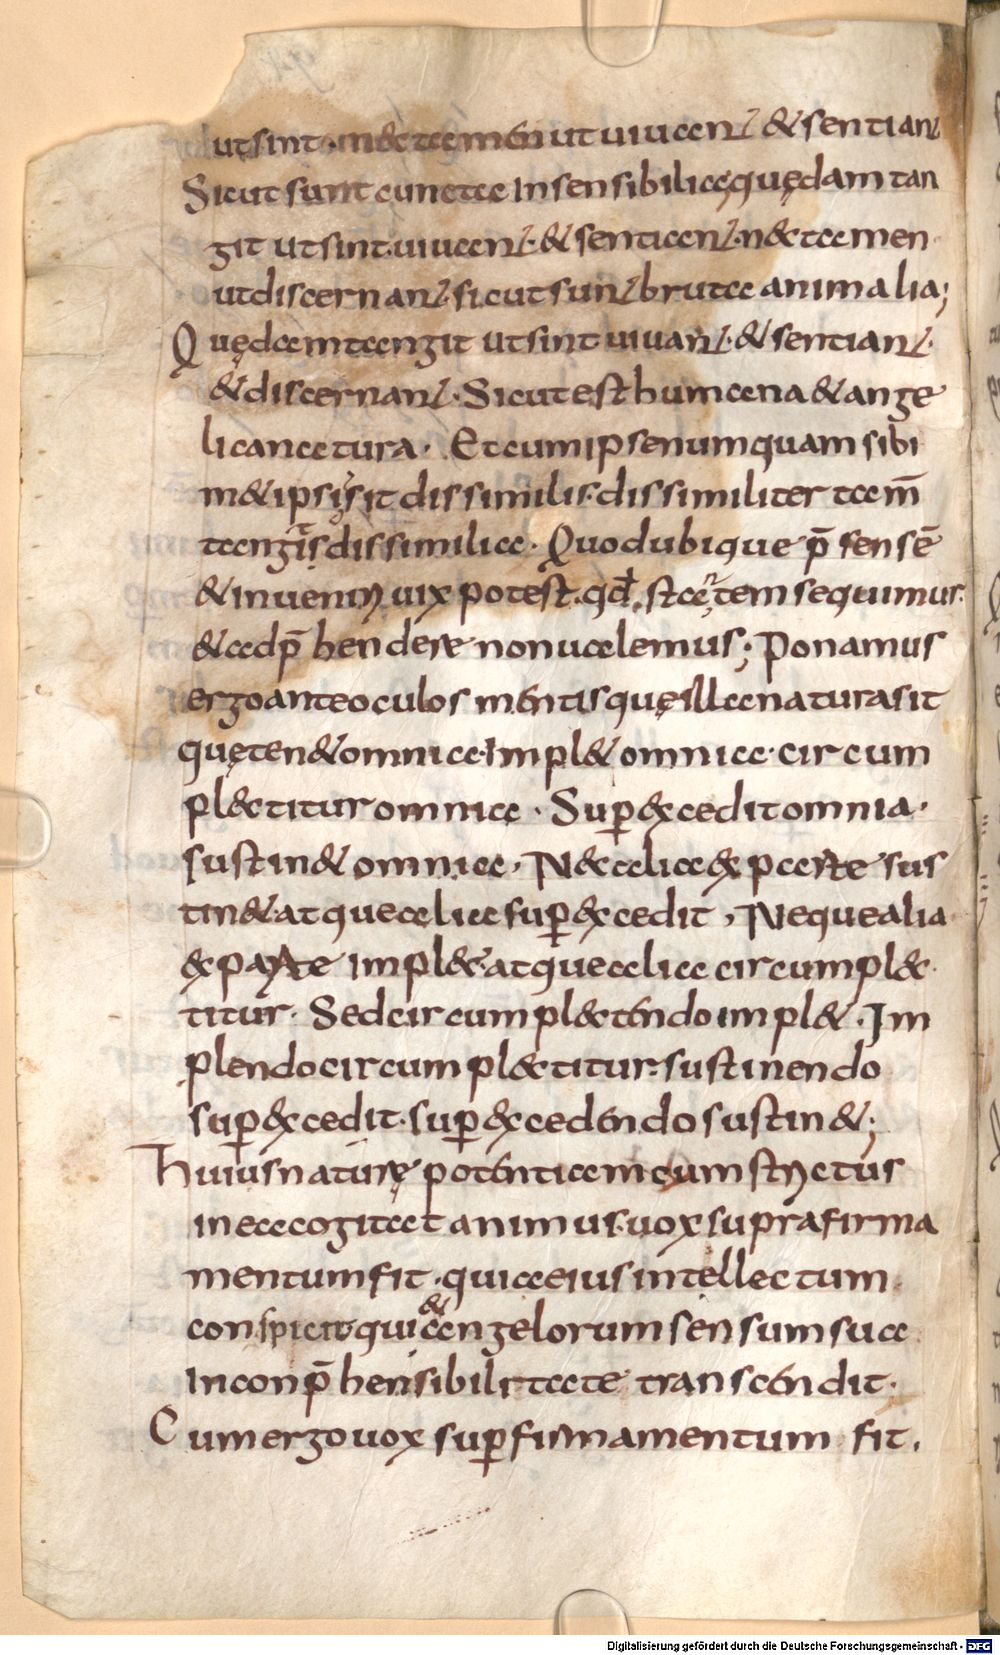 ut sint. nec tamen ut uiuant & sentiant
Sicut sunt cuncta insensibilia quędam tan
git ut sint. uiuant. & sentiant. nec tamen
ut discernant. sicut sunt bruta animalia;
Quędam tangit ut sint uiuant. & sentiant.
& discernant. Sicut est humana & ange
lica natura. Et cum ipse numquam sibi
m&ipsi sit dissimilis. dissimiliter tam̄
tangit dissimilia. Quod ubique p̄sensē
& inueniri uix potest. qđ stantem sequimur.
& adp̄hendere non ualemus; Ponamus
ergo ante oculos mentis quę illa natura sit
quę ten& omnia. Impl& omnia. circum
plectitur omnia. Sup̱excedit omnia.
sustin& omnia. Nec alia ex parte sus
tin&. atque alia sup̱excedit, Neque alia
ex parte impl&. atque alia circumplec
titur. Sed circumplectendo impl&. Im
plendo circumplectitur. sustinendo
sup̱excedit. sup̱excedendo sustin&;
Huius naturę potentiam cum strictus
in ea cogitat animus. uox supra firma
mentum fit. quia eius intellectum
conspicit qui & angelorum sensum sua
inconp̄hensibilitate transcendit.
Cum ergo uox sup̱ firmamentum fit.
Digitalisierung gefördert durch die Deutsche Forschungsgemeinschaft - DFG